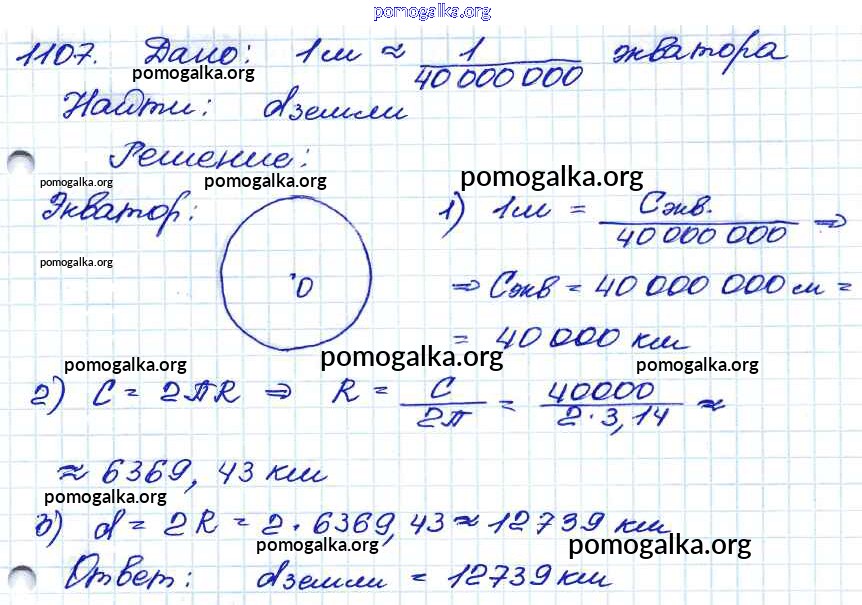 pomogalka.org
1107. Дано: 1м ≈ 1/40 000 000 экватора
pomogalka.org
Найти: dземли
Решение:
pomogalka.org pomogalka.org pomogalka.org
Экватор: 1) 1м = Cэкв./40 000 000 ⇒
pomogalka.org
O ⇒ Cэкв = 40 000 000 м =
= 40 000 км
pomogalka.org pomogalka.org pomogalka.org
2) C = 2πR ⇒ R = C/2π = 40000/2·3,14 ≈
≈ 6369,43 км
pomogalka.org
3) d = 2R = 2·6369,43 ≈ 12739 км
pomogalka.org pomogalka.org
Ответ: dземли = 12739 км